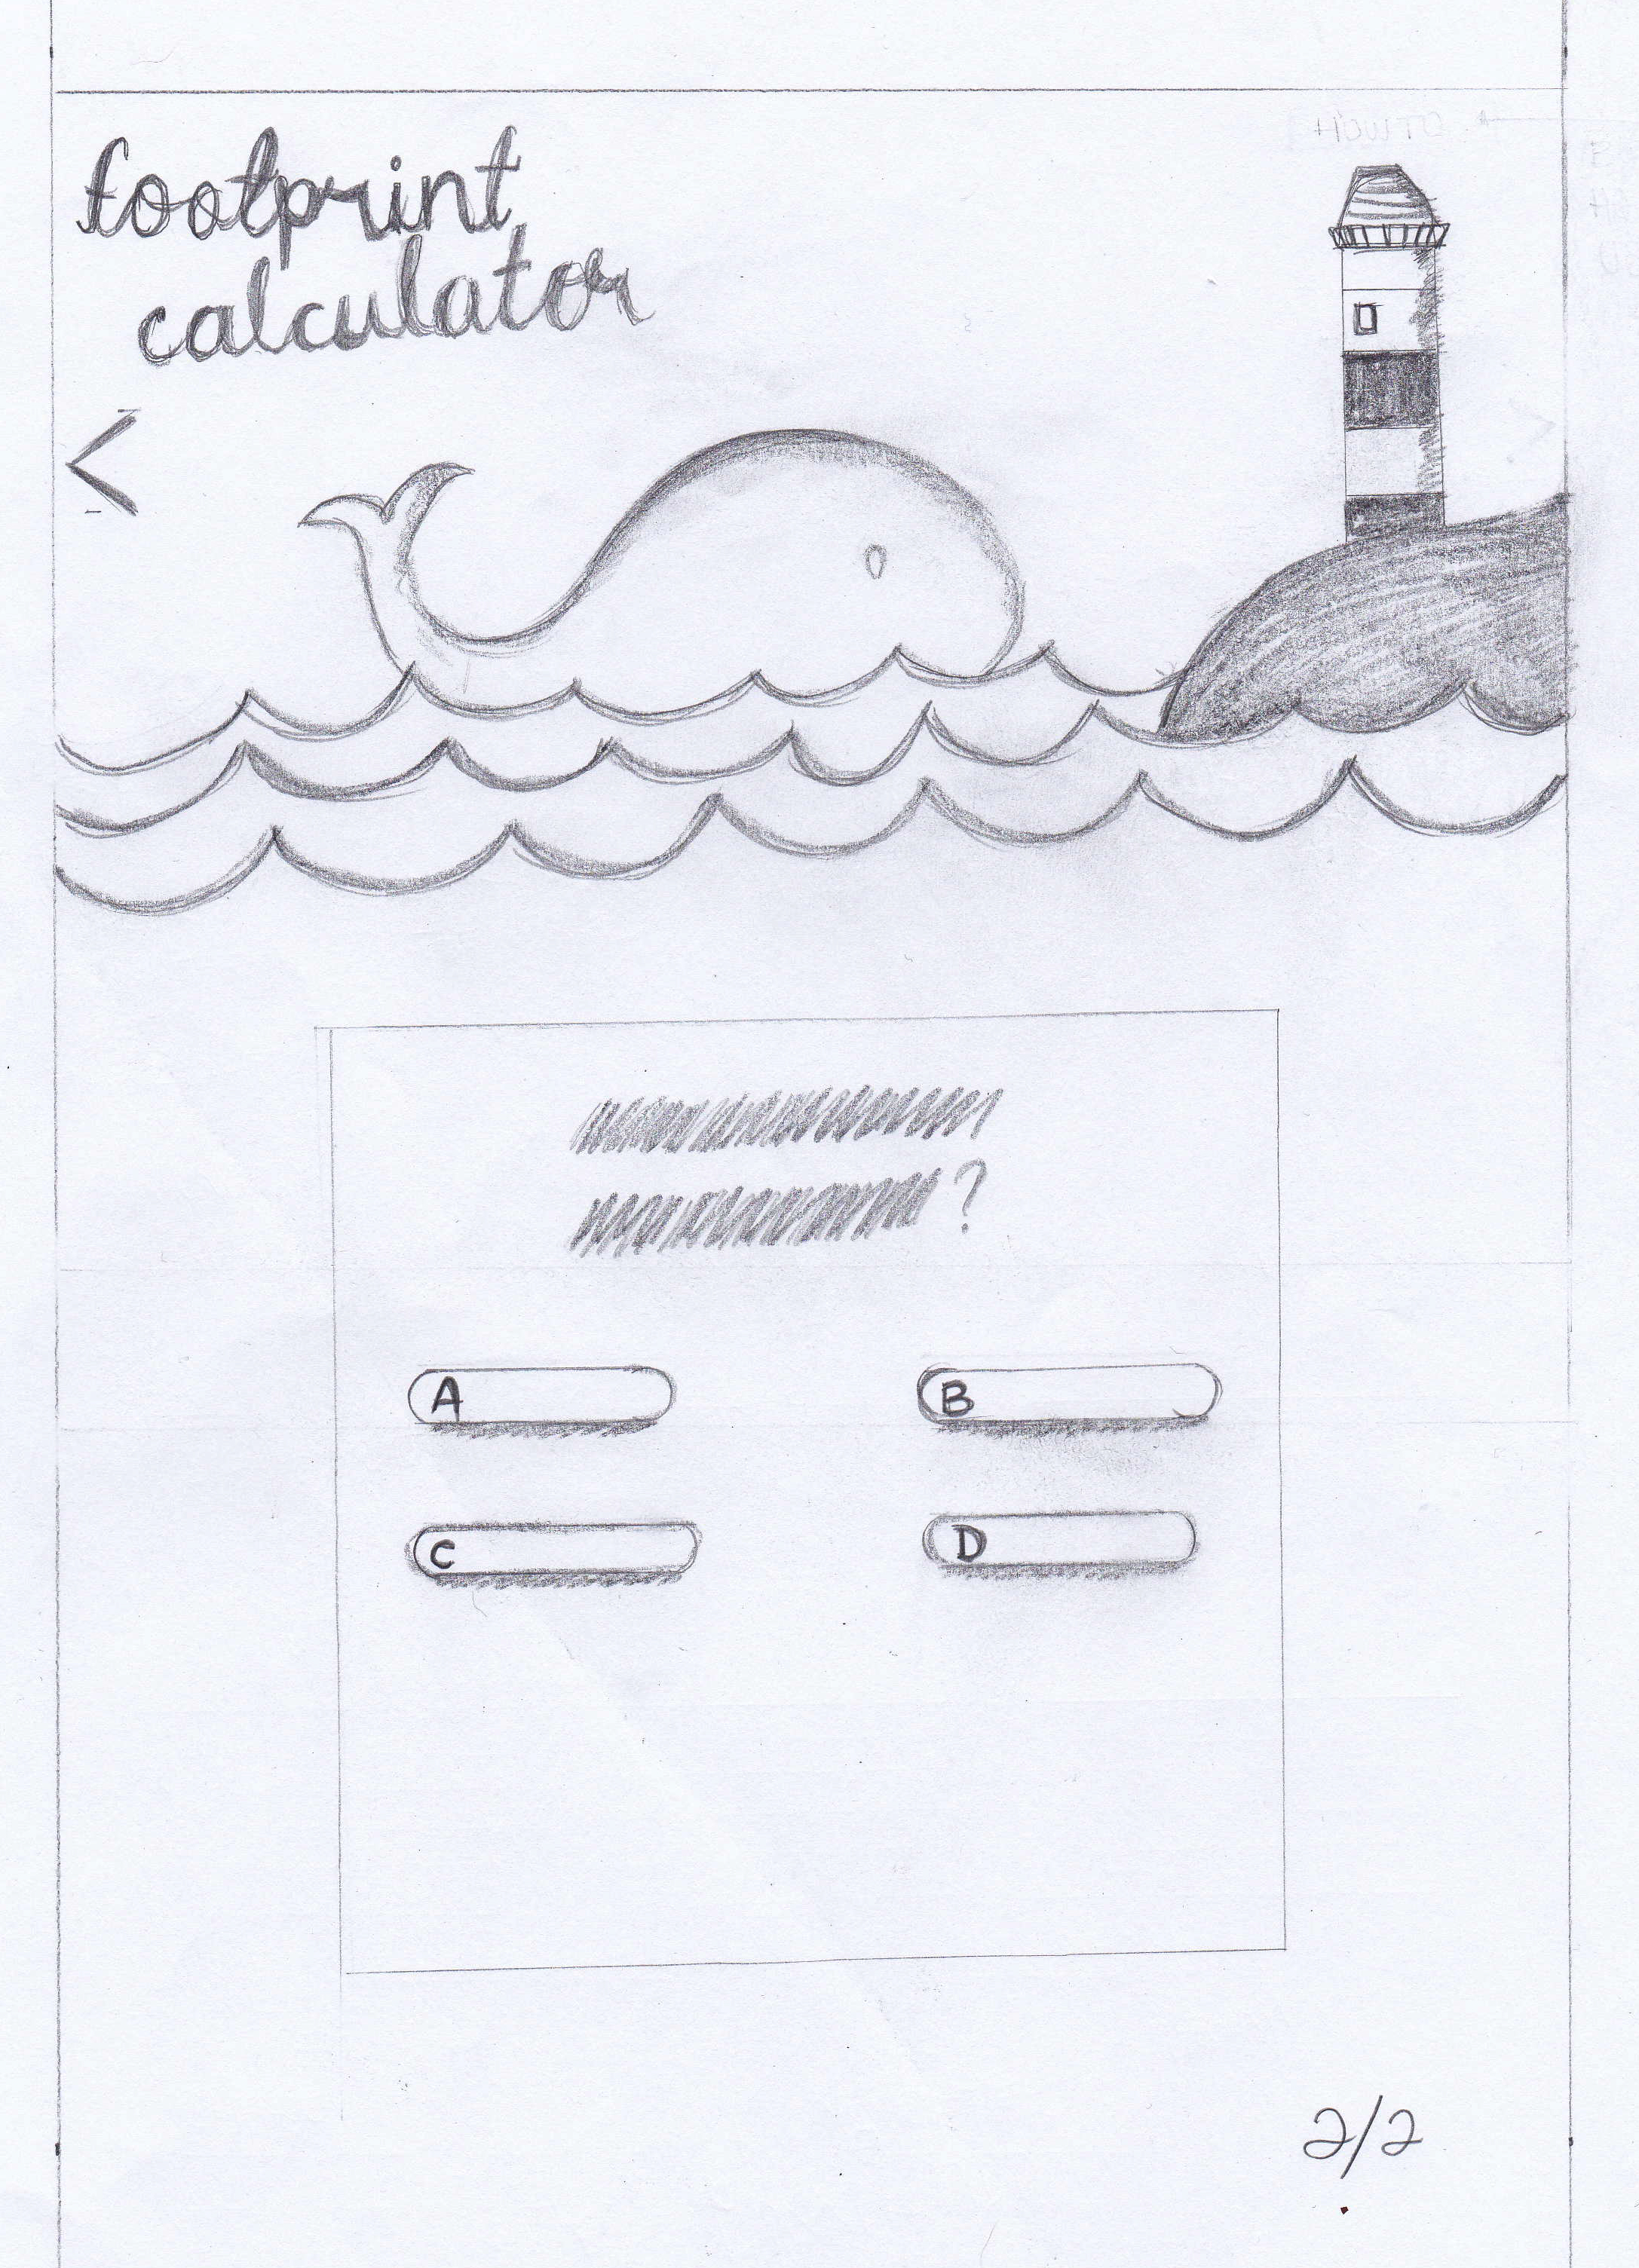 footprint
calculator
<
?
A
B
C
D
2/2